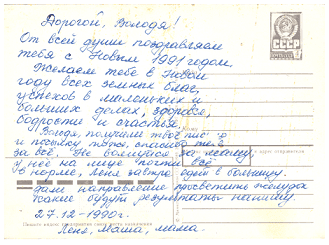 Дорогой, Володя!
От всей души поздравляем
тебя с Новым 1991 годом.
Желаем тебе в Новом
году всех земных благ,
успехов в маленьких и
больших делах, здоровья,
бодрости и счастья.
Володя, получили твоё письмо
и посылку тоже, спасибо тебе
за всё. Не волнуйся за маму,
у неё на лице почти всё
в норме, Лена завтра едет в больницу.
дали направление просветить желудок
какие будут результаты напишу.
27.12-1990г.
Лена, Маша, мама.
СССР